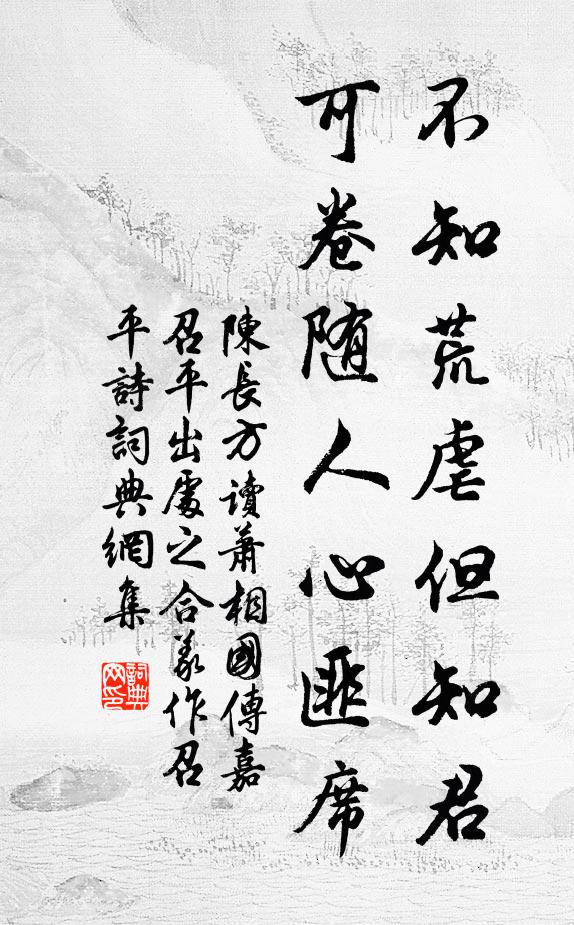 不知荒虐但知君
可卷随人心匪席
陳長方讀蕭相國傳嘉
召平出處之合義作召
平詩詞典網集
詞典
网印